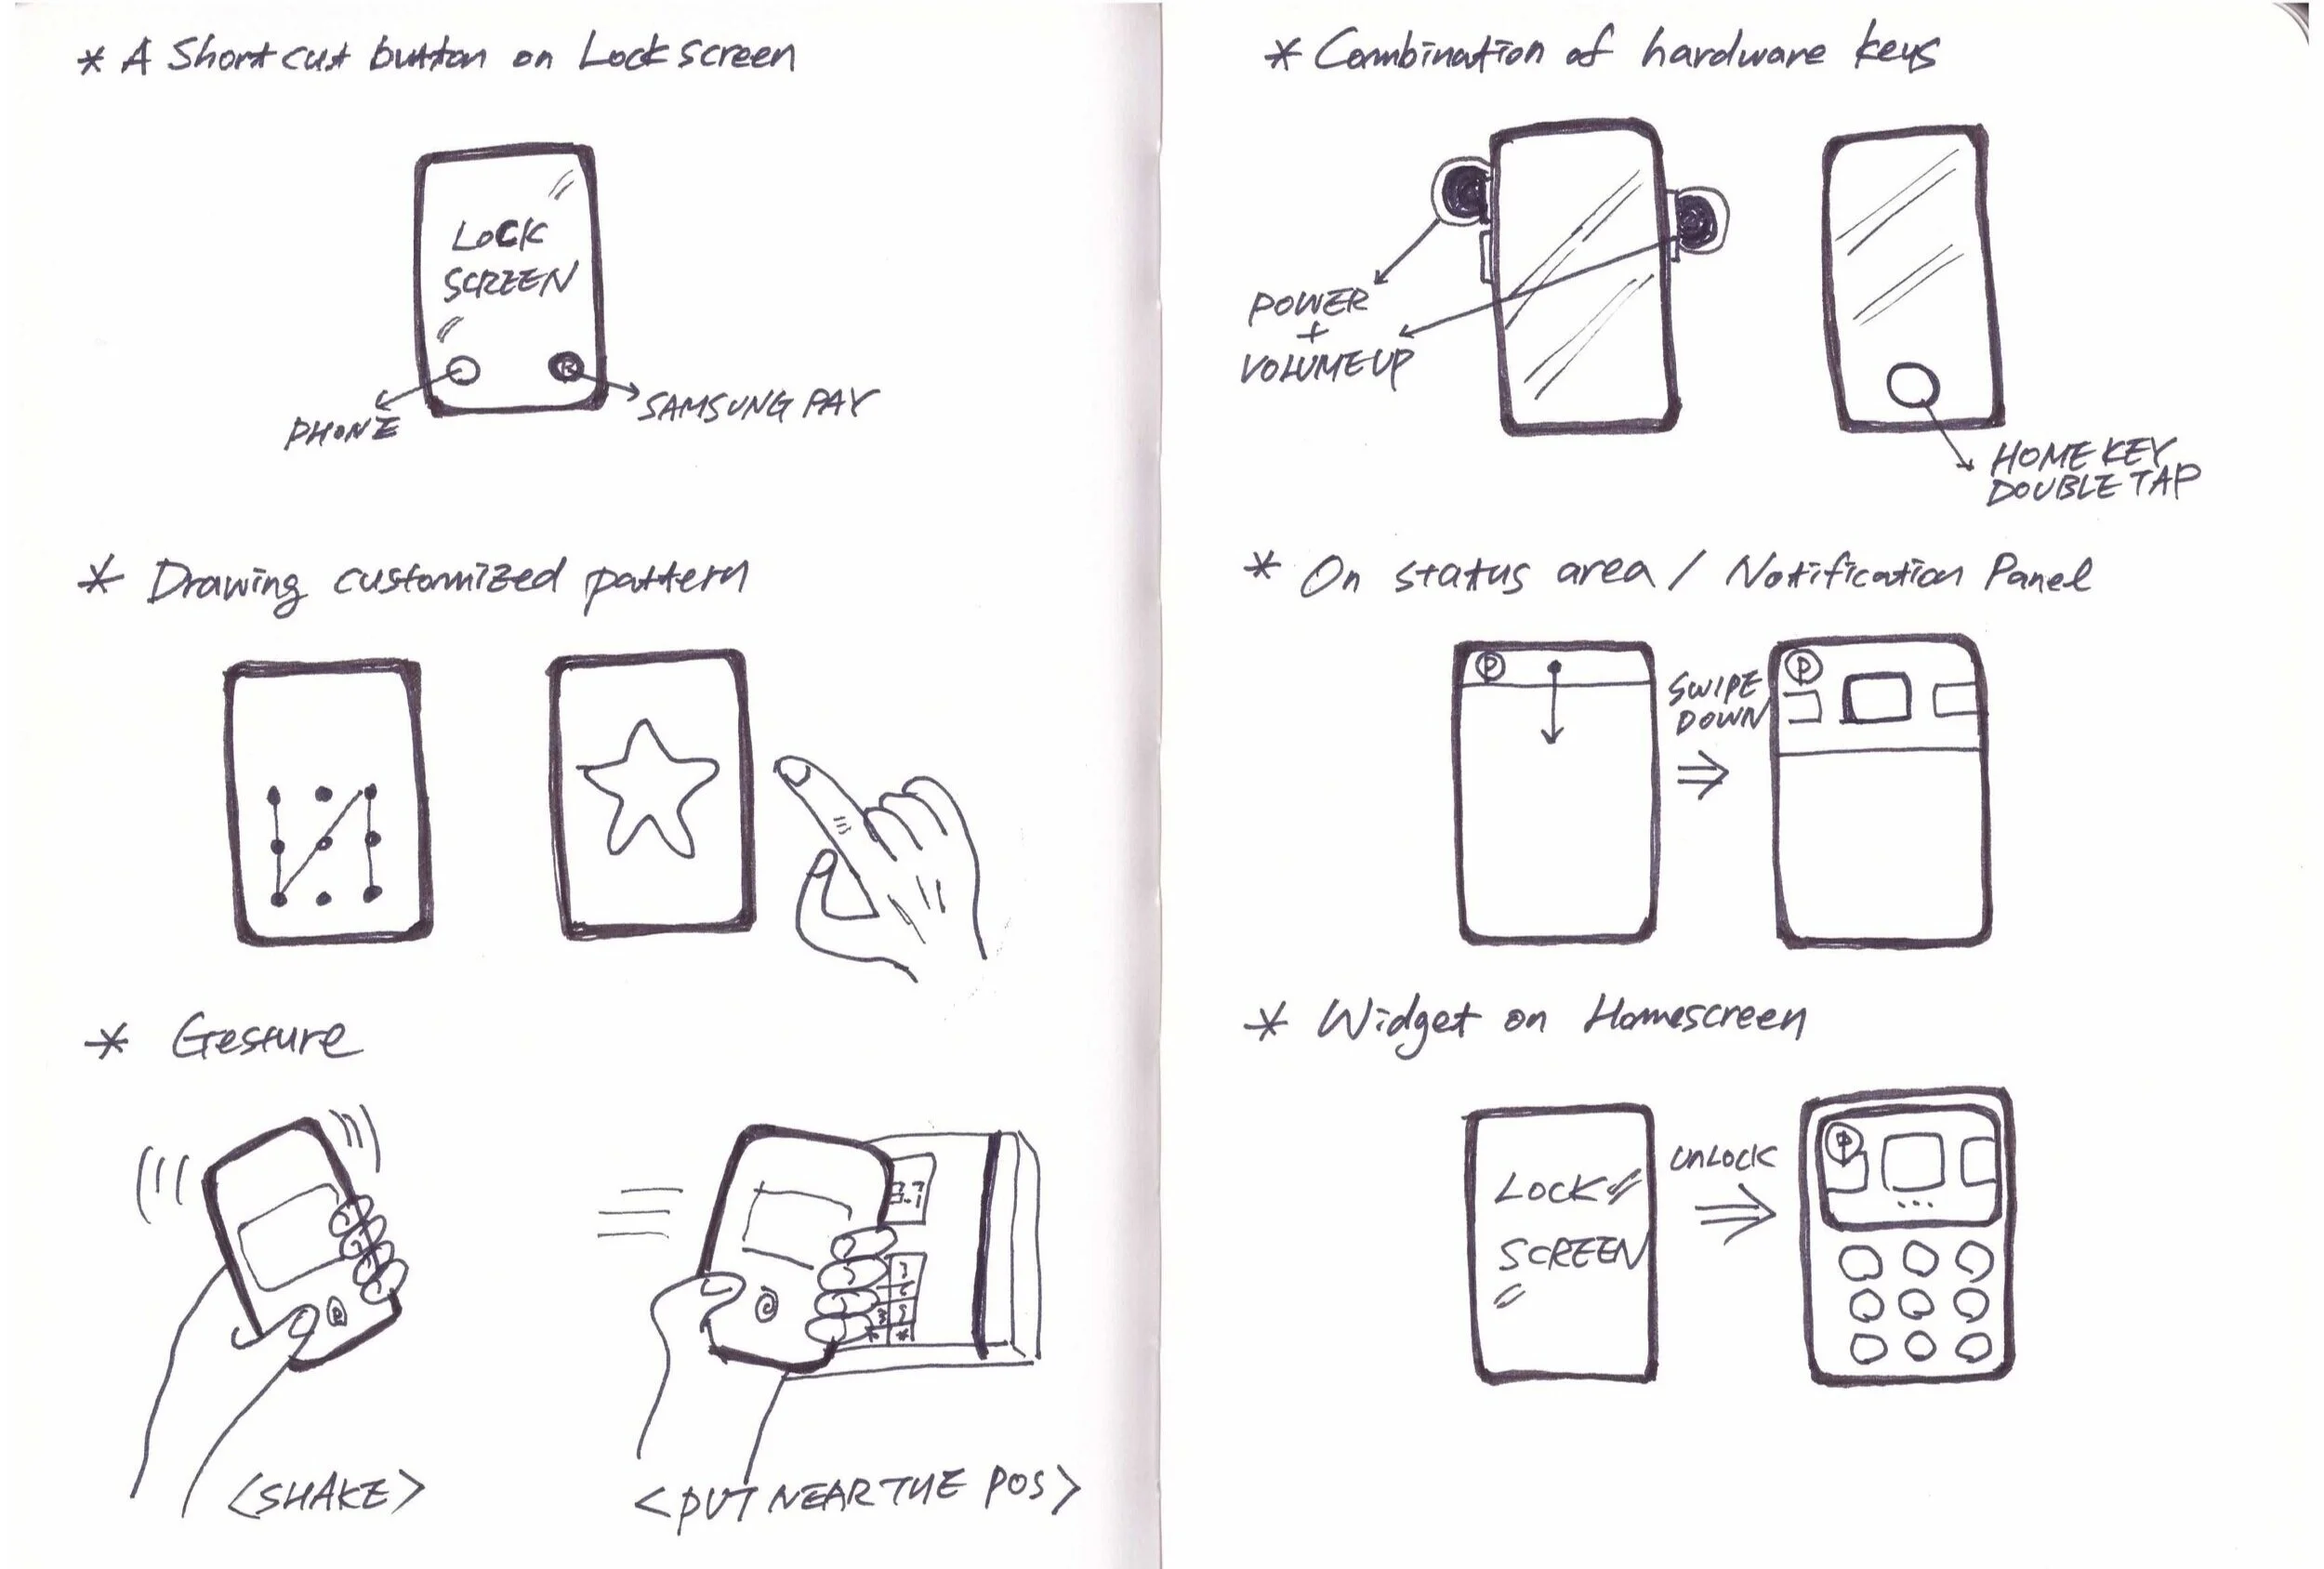 * A Shortcut button on Lock screen
LOCK
SCREEN
PHONE
SAMSUNG PAY
* Drawing customized pattern
* Gesture
<SHAKE>
<PUT NEAR THE POS>
* Combination of hardware keys
POWER
+
VOLUME UP
HOME KEY
DOUBLE TAP
* On status area / Notification Panel
P
SWIPE
DOWN
P
* Widget on Homescreen
LOCK
SCREEN
UNLOCK
P